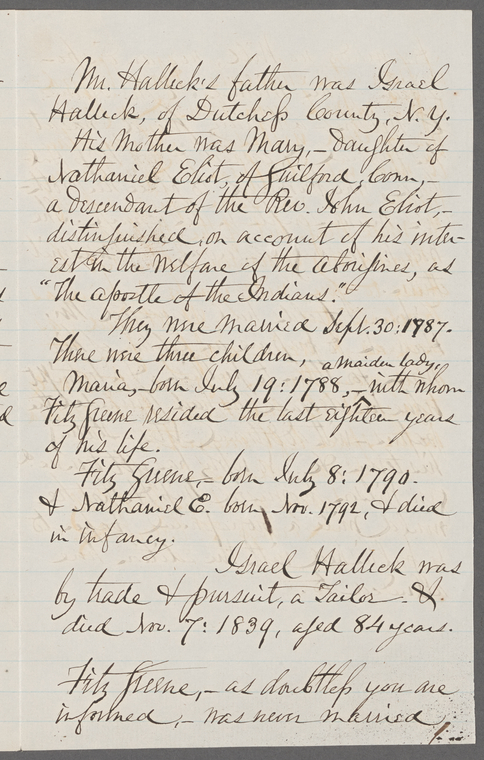 Mr. Halleck's father was Israel
Halleck, of Dutchess County, N.Y.
His Mother was Mary,- daughter of
Nathaniel Eliot, of Guilford, Conn,-
a descendant of the Rev. John Eliot,-
distinguished, on account of his inter-
est in the welfare of the aborigines, as
"The apostle of the Indians."
They were married Sept. 30: 1787.
There were three children,
a maiden lady,
Maria,- born July 19: 1788,- with whom
Fitz Greene resided the last eighteen years
of his life.
Fitz Greene,- born July 8: 1790.
& Nathaniel E. born Nov. 1792, & died
in infancy.
Israel Halleck was
by trade & pursuit, a Tailor - &
died Nov. 7: 1839, aged 84 years.
Fitz Greene,- as doubtless you are
informed,- was never married